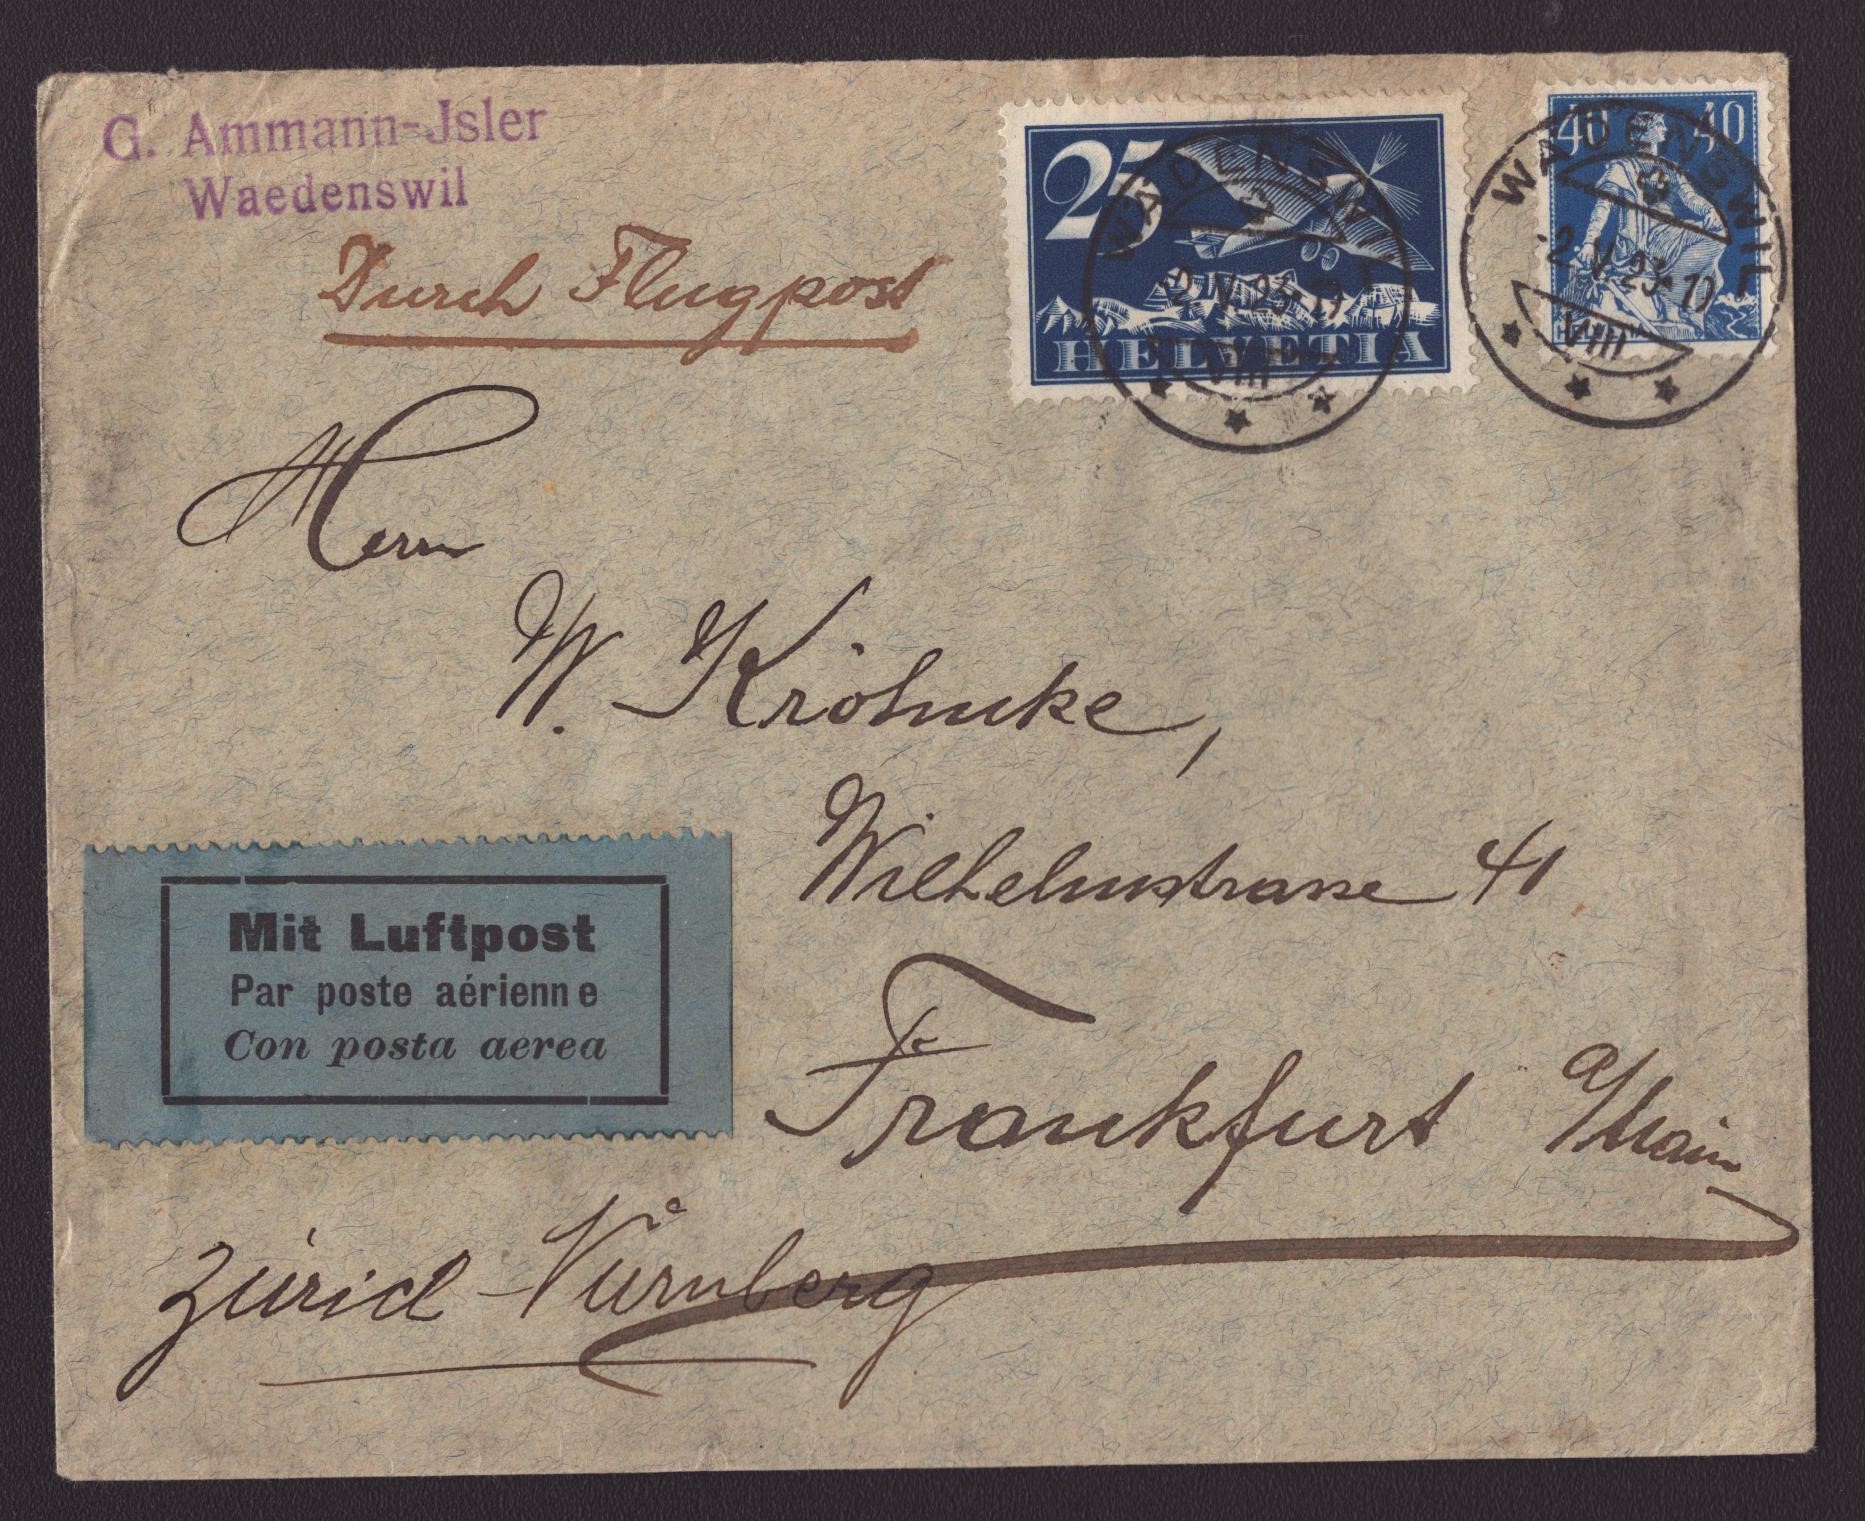 G. Ammann-Jsler
Waedenswil
Durch Flugpost
25
HELVETIA
WÄDENSWIL
VIII
40 40
HELVETIA
WÄDENSWIL
-2.V.23-1
VIII
Herrn
W. Kröhncke,
Wilhelmstrasse 41
Frankfurt a/Main
Mit Luftpost
Par poste aérienne
Con posta aerea
Zürich-Nürnberg